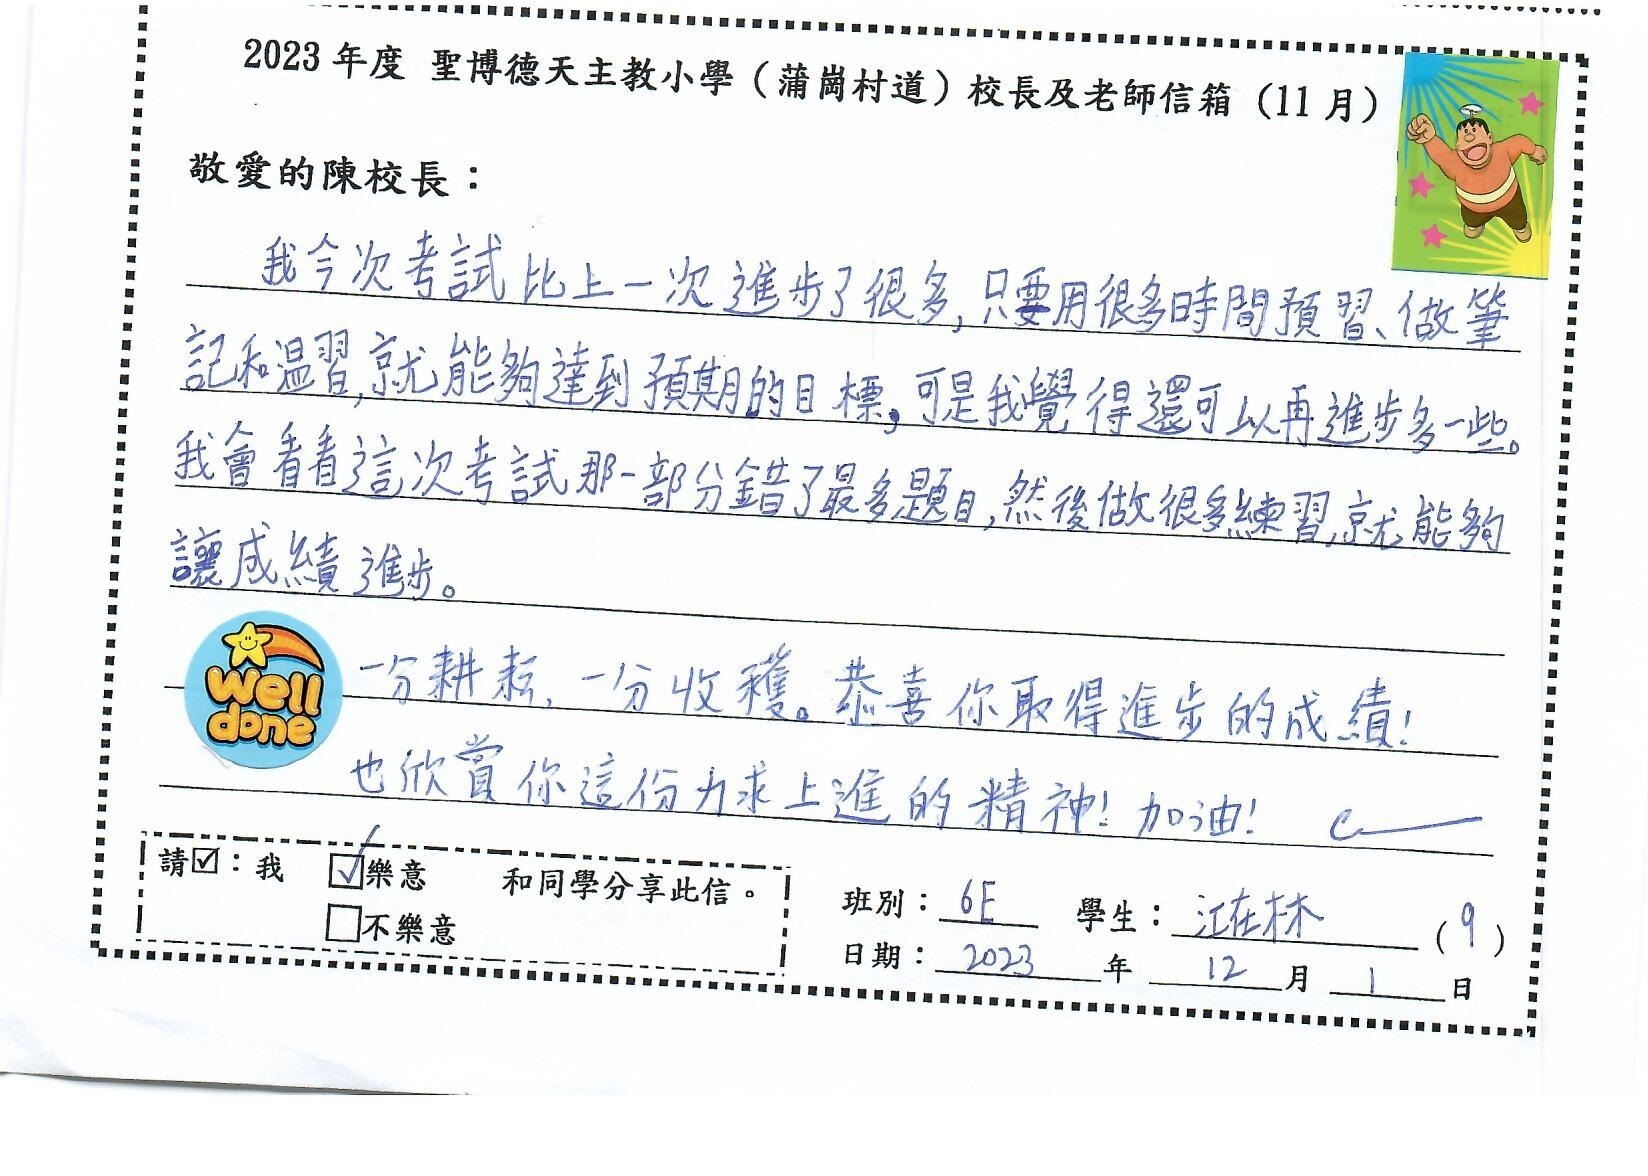 2023 年度 聖博德天主教小學（蒲崗村道）校長及老師信箱（11 月）
敬愛的陳校長：
我今次考試比上一次進步了很多,只要用很多時間預習、做筆
記和温習,就能夠達到預期的目標,可是我覺得還可以再進步多一些。
我會看看這次考試那一部分錯了最多題目,然後做很多練習,就能夠
讓成績進步。
Well
done
一分耕耘,一分收穫。恭喜你取得進步的成績!
也欣賞你這份力求上進的精神!加油!
請☑：我 ☑樂意 和同學分享此信。
□不樂意
班別：6E 學生：江在林（9）
日期：2023 年 12 月 1 日